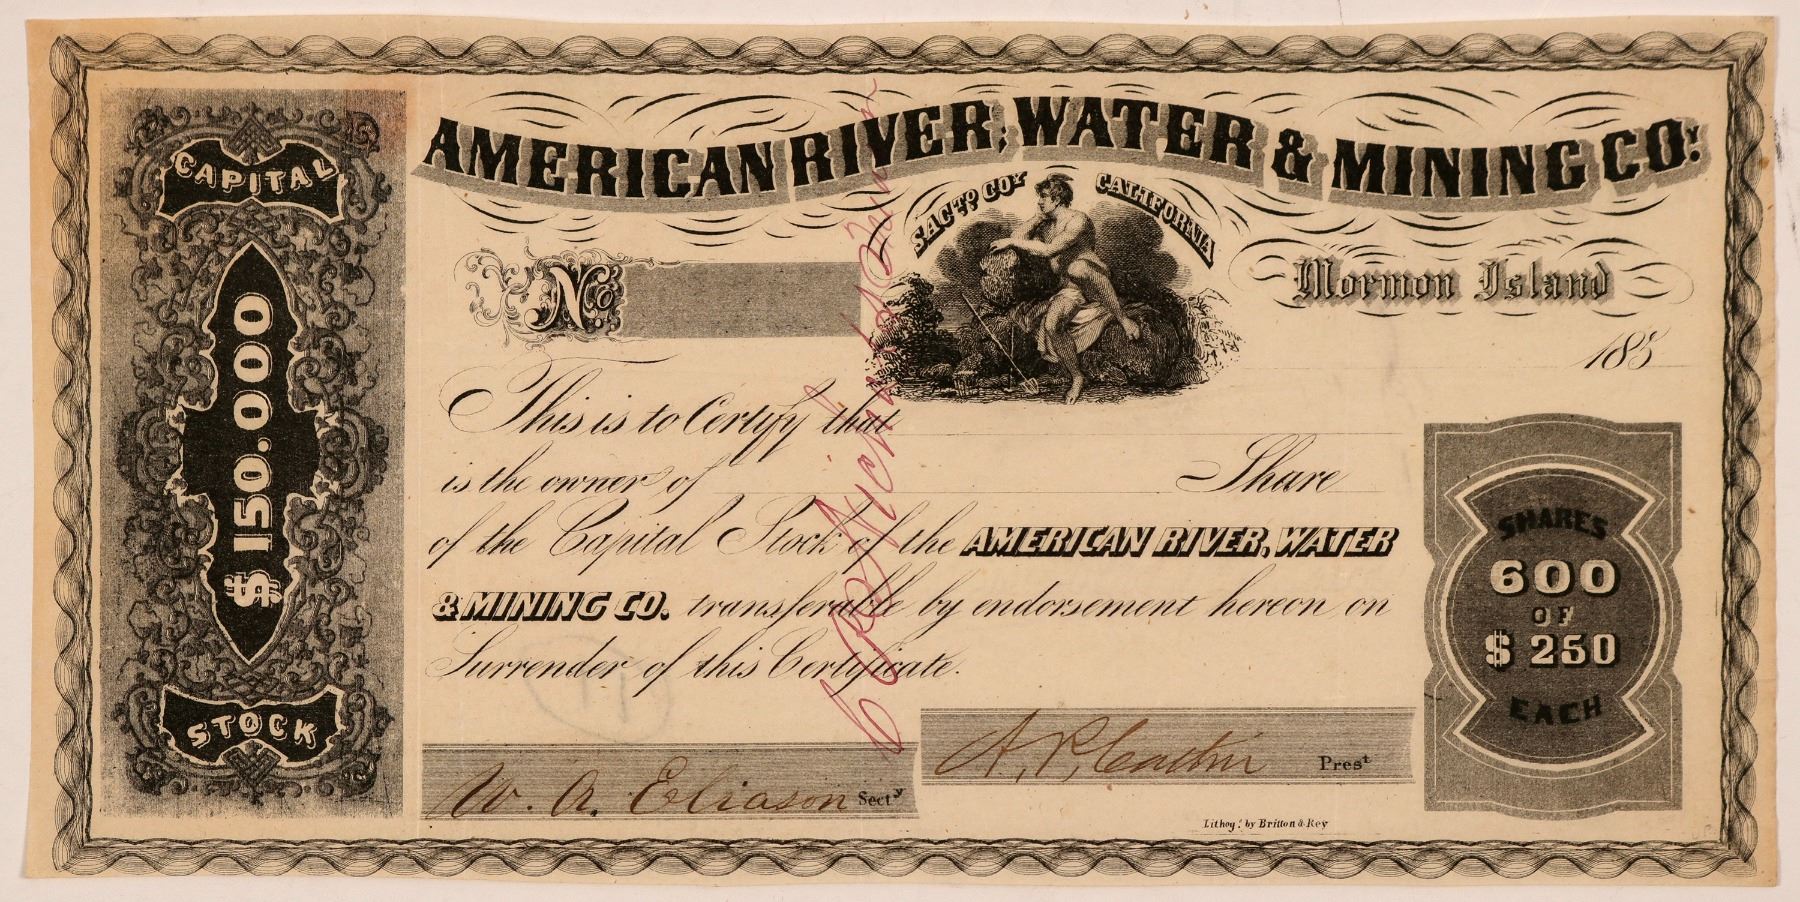 AMERICAN RIVER, WATER & MINING CO.Y
SAC.TO CO.Y CALIFORNIA
CAPITAL
$150.000
STOCK
No.
Mormon Island
185
This is to Certify that
is the owner of Share
of the Capital Stock of the AMERICAN RIVER, WATER
& MINING CO. transferable by endorsement hereon on
Surrender of this Certificate.
SHARES
600
OF
$250
EACH
W. A. Eliason Sect.y
A. P. Catlin Prest
Lithog. by Britton & Rey